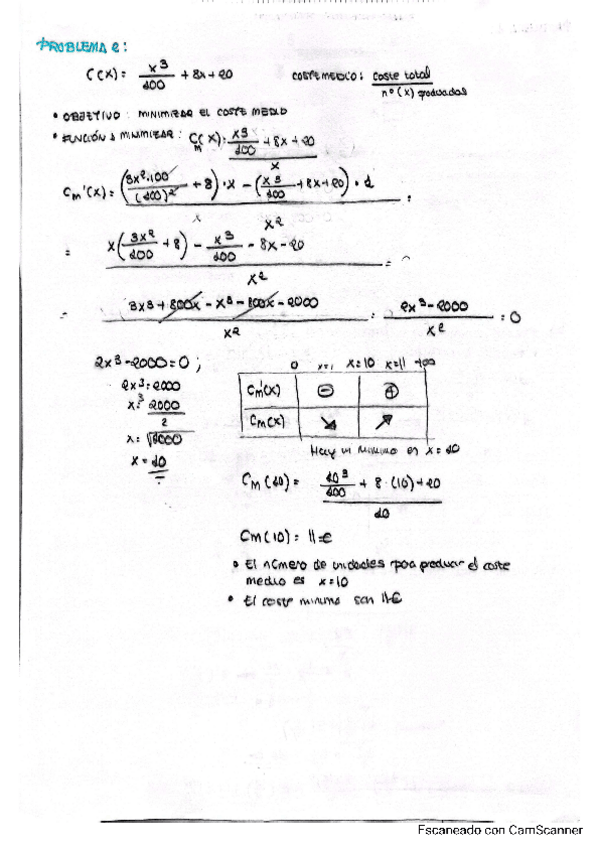 PROBLEMA 2:
C(X) = x³/100 + 8x + 20
COSTE MEDIO: coste total / nº (x) graduados
• OBJETIVO: MINIMIZAR EL COSTE MEDIO
• FUNCIÓN A MINIMIZAR: CM(X) = (x³/100 + 8x + 20) / x
CM'(x) = ((3x²·100/(100)² + 8) · x − (x³/100 + 8x + 20) · 1) / x² =
= (x(3x²/100 + 8) − x³/100 − 8x − 20) / x² = 0
= (3x³ + 800x − x³ − 800x − 2000) / x² = (2x³ − 2000) / x² = 0
2x³ − 2000 = 0;
2x³ = 2000
x³ = 2000/2
x = ∛1000
x = 10
0 x=1 x=10 x=11 +∞
CM'(x) ⊖ ⊕
CM(x) ↘ ↗
Hay un mínimo es x = 10
CM(10) = (10³/100 + 8 · (10) + 20) / 10
CM(10) = 11€
• El número de unidades para producir el coste
medio es x = 10
• El coste mínimo son 11€
Escaneado con CamScanner